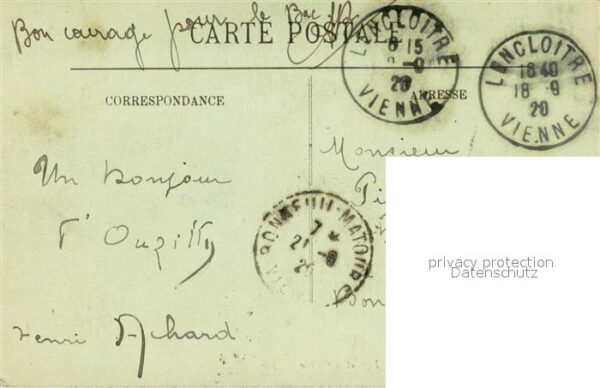 Bon courage pour le Bac
CARTE POSTALE
LENCLOITRE
6 15
9
20
VIENNE
LENCLOITRE
16 40
18 9
20
VIENNE
CORRESPONDANCE
ADRESSE
Monsieur
Un bonjour
d'Ouzilly
Henri Achard
BONNEUIL-MATOURS
7 *
21 9
Bon
privacy protection
Datenschutz